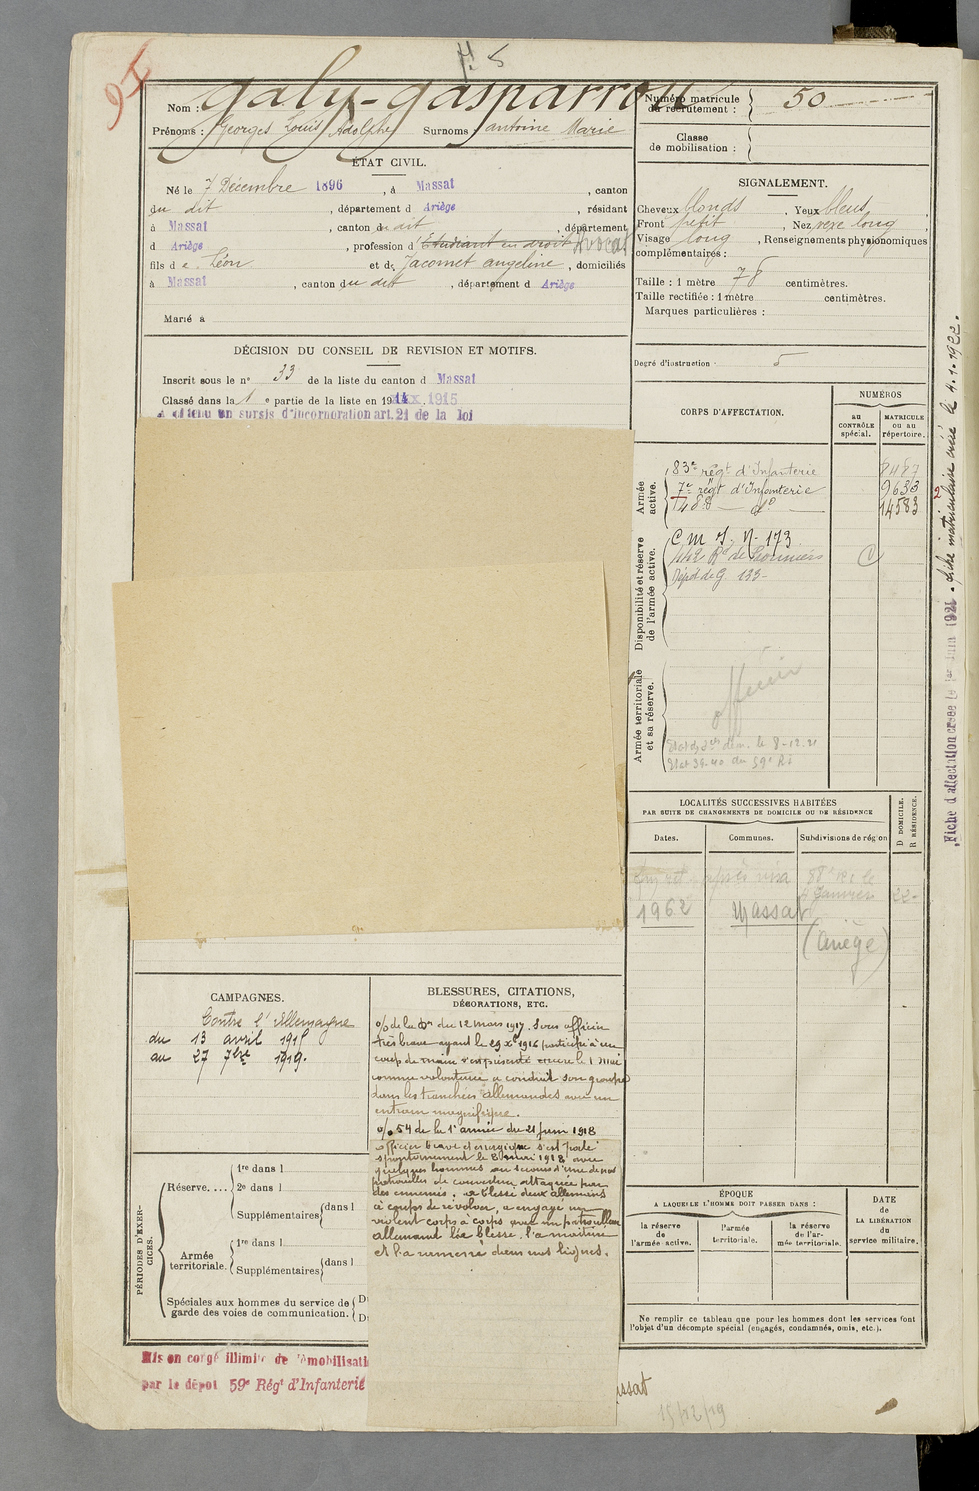 95
Nom : Galy-Gasparrou
Prénoms : Georges Louis Adolphe Surnoms : antoine Marie
ÉTAT CIVIL.
Né le 7 Décembre 1896, à Massat, canton
du dit, département d Ariège, résidant
à Massat, canton du dit, département
d Ariège, profession d'Etudiant en droit Avocat
fils de Léon et de Jacomet angeline, domiciliés
à Massat, canton du dit, département d Ariège
Marié à
DÉCISION DU CONSEIL DE REVISION ET MOTIFS.
Inscrit sous le no 33 de la liste du canton d Massat
Classé dans la 1e partie de la liste en 1915
A obtenu un sursis d'incorporation art. 21 de la loi
CAMPAGNES.
Contre l'Allemagne
du 13 avril 1915
au 27 7bre 1919.
BLESSURES, CITATIONS,
DÉCORATIONS, ETC.
o/ de la Don du 12 mars 1917. Sous officier
très brave ayant le 29 Xbre 1916 participé à un
coup de main s'est présenté encore le 1 mai
comme volontaire a conduit son groupe
dans les tranchées allemandes avec un
entrain magnifique.
o/ 54 de la 1e armée du 21 Juin 1918
officier brave et energique s'est porté
spontanement le 8 mai 1918 avec
quelques hommes au secours d'une de nos
patrouilles de couverture attaquée par
des ennemis. a blessé deux allemands
à coups de revolver, a engagé un
violent corps à corps avec un patrouilleur
allemand l'a blessé, l'a maitrisé
et l'a ramené dans nos lignes.
PÉRIODES D'EXERCICES.
Réserve.... 1re dans l
2e dans l
Supplémentaires dans l
Armée territoriale. 1re dans l
Supplémentaires dans l
Spéciales aux hommes du service de
garde des voies de communication.
Mis en congé illimité de démobilisati
par le dépot 59e Régt d'Infanterie
ssat
15/12/19
Numéro matricule
du recrutement : 50
Classe
de mobilisation :
SIGNALEMENT.
Cheveux blonds, Yeux bleus,
Front petit, Nez vexe long,
Visage long, Renseignements physionomiques
complémentaires :
Taille : 1 mètre 78 centimètres.
Taille rectifiée : 1 mètre centimètres.
Marques particulières :
Degré d'instruction : 5
CORPS D'AFFECTATION.
NUMÉROS
au CONTRÔLE spécial.
MATRICULE ou au répertoire.
Armée active.
83e régt d'Infanterie 8487
7e régt d'Infanterie 9633
148e — do — 14583
Disponibilité et réserve de l'armée active.
C m I. N. 173
442 Rt de Pionniers
Dépot de G. 133
Armée territoriale et sa réserve.
officier
Fiche d'affectation créée le 1er Juin 1921. Fiche matriculaire créée le 4.1.1922.
LOCALITÉS SUCCESSIVES HABITÉES
PAR SUITE DE CHANGEMENTS DE DOMICILE OU DE RÉSIDENCE
Dates. Communes. Subdivisions de région
D DOMICILE.
R RÉSIDENCE.
1962 Massat
(Ariège)
ÉPOQUE
A LAQUELLE L'HOMME DOIT PASSER DANS :
la réserve de l'armée active.
l'armée territoriale.
la réserve de l'armée territoriale.
DATE de LA LIBÉRATION du service militaire.
Ne remplir ce tableau que pour les hommes dont les services font
l'objet d'un décompte spécial (engagés, condamnés, omis, etc.).